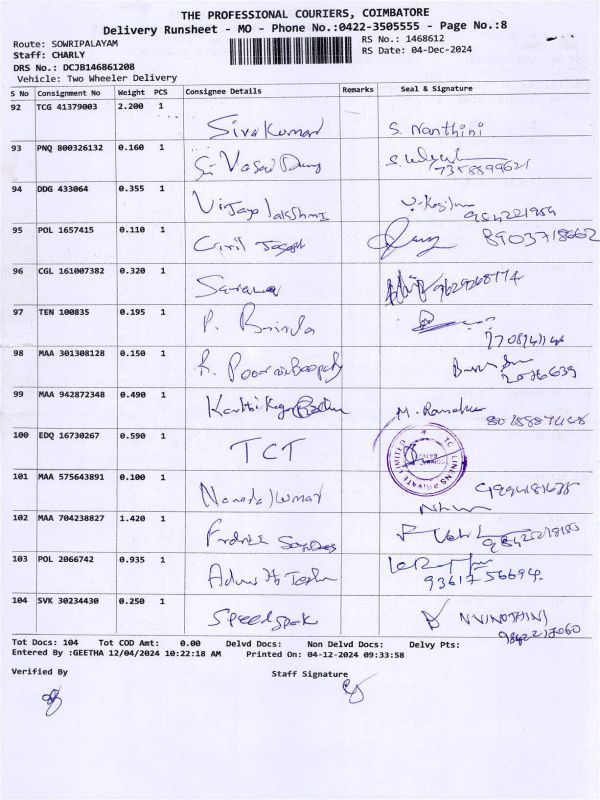 THE PROFESSIONAL COURIERS, COIMBATORE
Delivery Runsheet - MO - Phone No.:0422-3505555 - Page No.:8
Route: SOWRIPALAYAM
RS No.: 1468612
Staff: CHARLY
RS Date: 04-Dec-2024
DRS No.: DCJB146861208
Vehicle: Two Wheeler Delivery
S No Consignment No Weight PCS Consignee Details Remarks Seal & Signature
92 TCG 41379003 2.200 1
Siva Kumar S. Nanthini
93 PNQ 800326132 0.160 1
7358899621
94 DDG 433064 0.355 1
Vijaya lakshmi
95 POL 1657415 0.110 1
Ciril Joseph 8903718662
96 CGL 161007382 0.320 1
Sarana 9629268774
97 TEN 100835 0.195 1
P. Brinda
98 MAA 301308128 0.150 1
99 MAA 942872348 0.490 1
100 EDQ 16730267 0.590 1
TCT
TC LINENS PRIVATE LIMITED
101 MAA 575643891 0.100 1
Nanda kumar
102 MAA 704238827 1.420 1
103 POL 2066742 0.935 1
93617 56694
104 SVK 30234430 0.250 1
N VINOTHINI
9842217060
Tot Docs: 104 Tot COD Amt: 0.00 Delvd Docs: Non Delvd Docs: Delvy Pts:
Entered By :GEETHA 12/04/2024 10:22:18 AM Printed On: 04-12-2024 09:33:58
Verified By Staff Signature